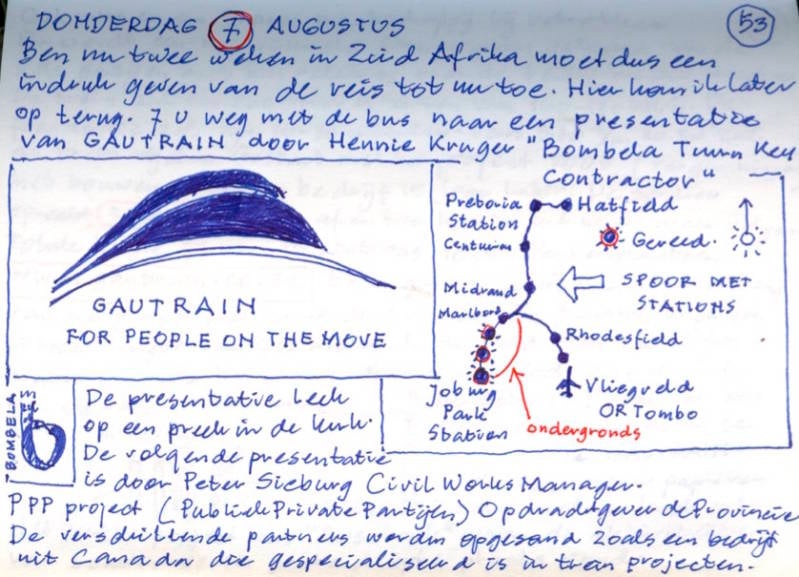 DONDERDAG 7 AUGUSTUS
53
Ben nu twee weken in Zuid Afrika moet dus een
indruk geven van de reis tot nu toe. Hier kom ik later
op terug. 7 U weg met de bus naar een presentatie
van GAUTRAIN door Hennie Kruger "Bombela Turn Key
Contractor"
GAUTRAIN
FOR PEOPLE ON THE MOVE
Pretoria
Station
Hatfield
Centurion
Gereed.
Midrand
SPOOR MET
STATIONS
Marlboro
Rhodesfield
Joburg
Park
Station
Vliegveld
OR Tombo
ondergronds
BOMBELA
b
De presentatie leek
op een preek in de kerk.
De volgende presentatie
is door Peter Sieburg Civil Works Manager.
PPP project (Publiek Private Partijen) Opdrachtgever de Provincie
De verschillende partners worden opgesomd zoals een bedrijf
uit Canada die gespecialiseerd is in trein projecten.